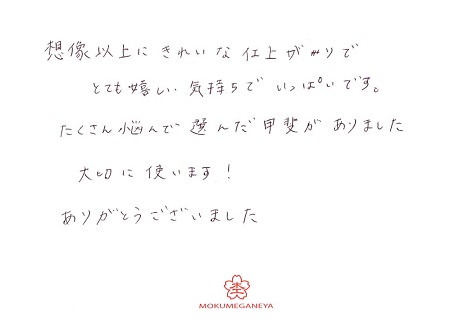 想像以上にきれいな仕上がりで
とても嬉しい気持ちでいっぱいです。
たくさん悩んで選んだ甲斐がありました
大切に使います!
ありがとうございました
MOKUMEGANEYA